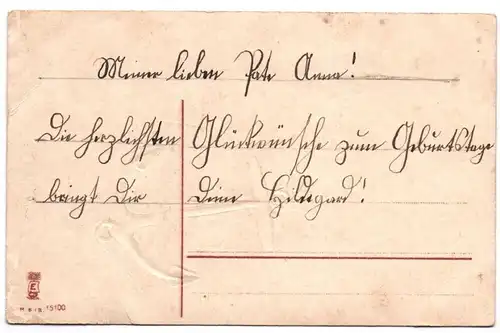 Meiner lieben Pate Anna!
Die herzlichsten Glückwünsche zum Geburtstage
bringt Dir Deine Hildegard!
15100